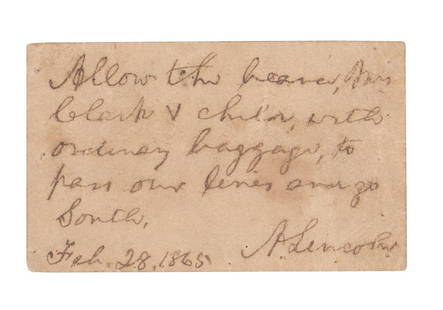 Allow the bearer, Mrs
Clark & child, with
ordinary baggage, to
pass our lines and go
South,
Feb. 28. 1865 A. Lincoln